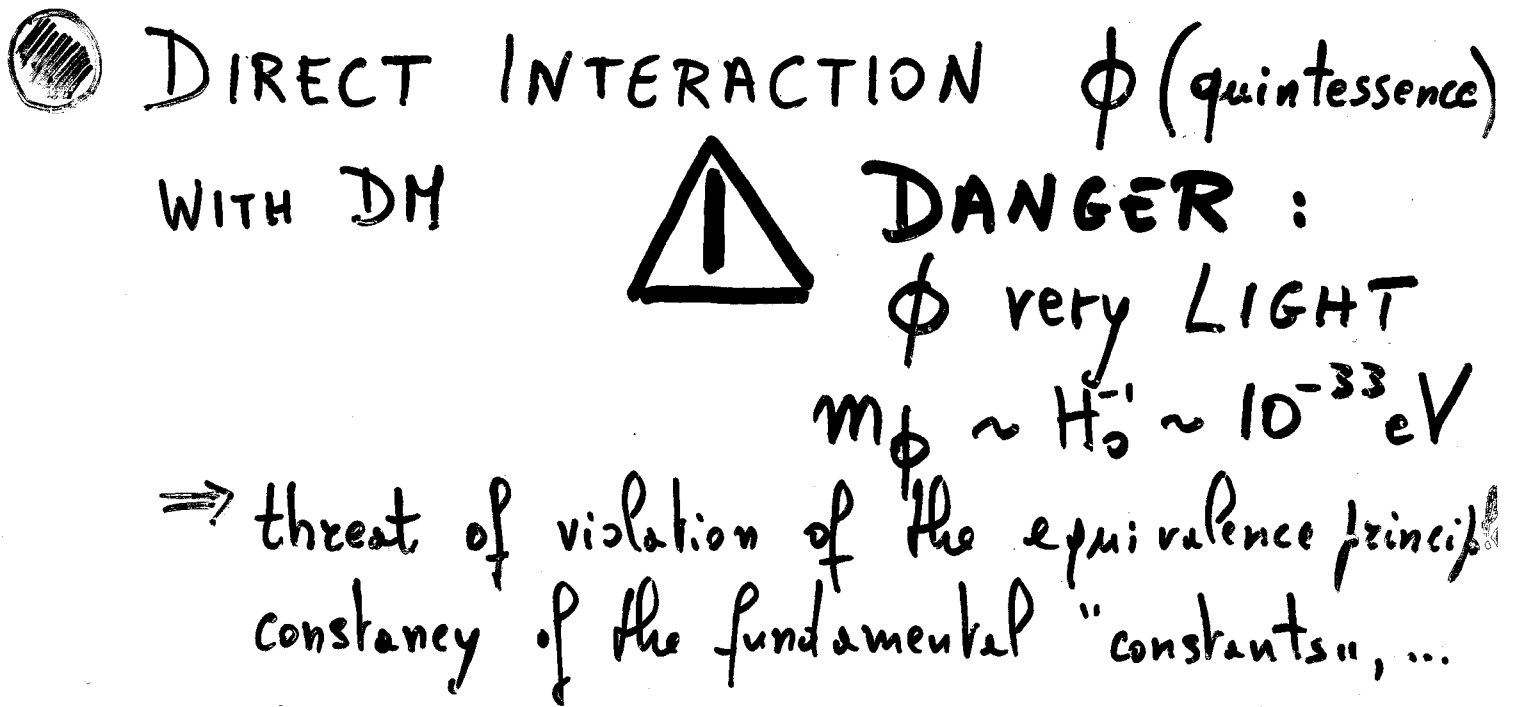 DIRECT INTERACTION ϕ (quintessence)
WITH DM DANGER :
ϕ very LIGHT
mϕ ~ H₀⁻¹ ~ 10⁻³³ eV
⇒ threat of violation of the equivalence
constancy of the fundamental "constants", ...